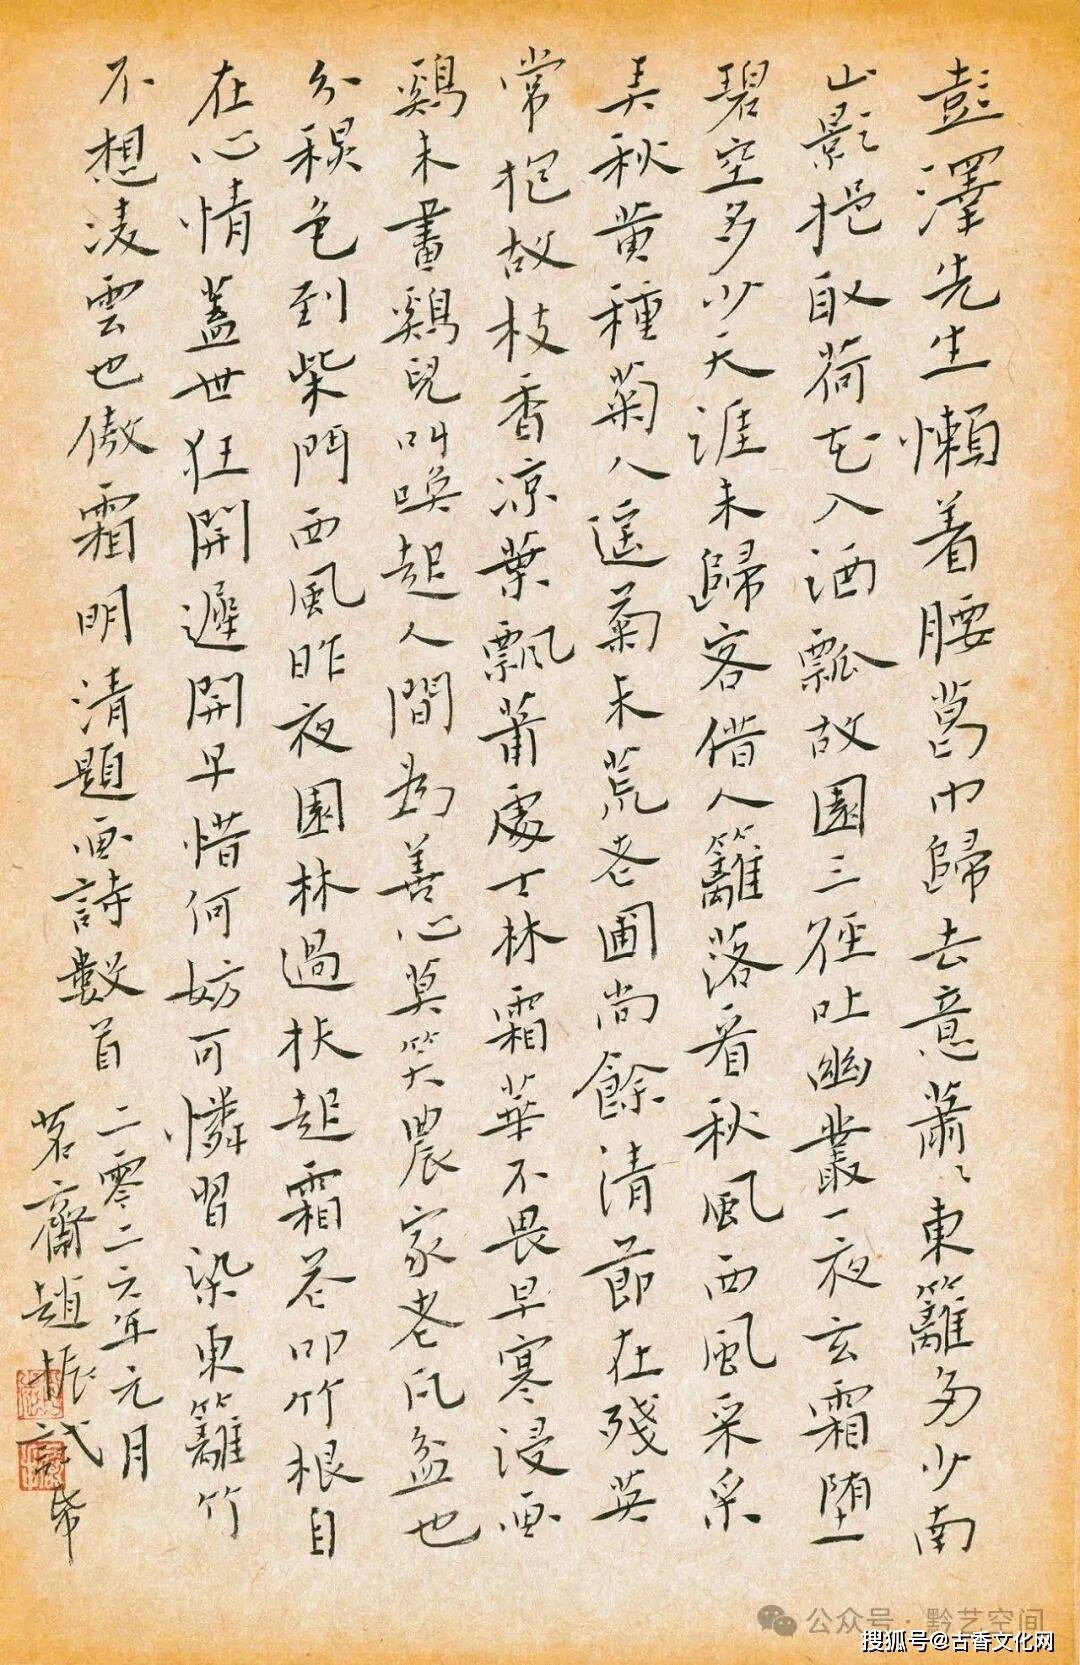 彭澤先生懶着腰葛巾歸去意蕭〻東籬多少南
山影挹取荷花入酒瓢故園三徑吐幽叢一夜玄霜堕
碧空多少天涯未歸客借人籬落看秋風西風采采
弄秋黄種菊人遥菊未荒老圃尚餘清節在殘英
常抱故枝香涼葉飄蕭處士林霜華不畏早寒浸画
鷄未畫鷄兒叫喚起人間為善心莫笑農家老瓦盆也
分穠色到柴門西風昨夜園林過扶起霜花叩竹根自
在心情蓋世狂開遲開早惜何妨可憐習染東籬竹
不想凌雲也傲霜明清題画詩數首
二零二六年元月
茗齋趙振試帋
公众号·黔艺空间
搜狐号@古香文化网